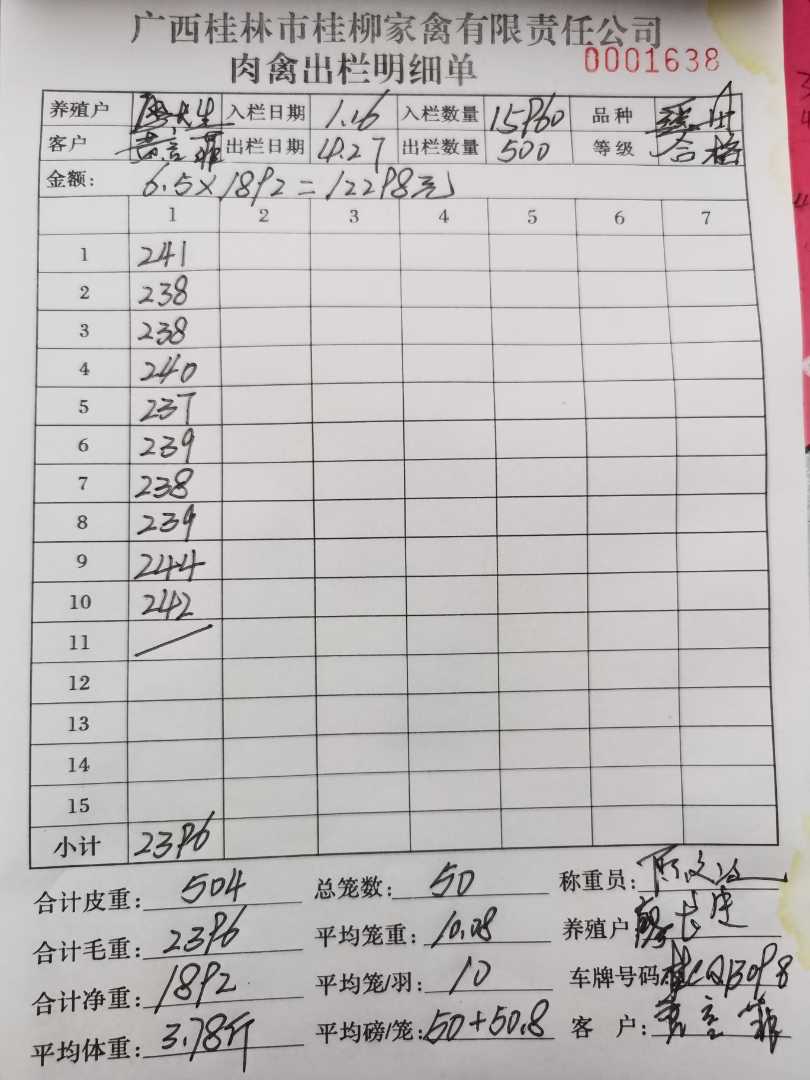 广西桂林市桂柳家禽有限责任公司
肉禽出栏明细单 0001638
养殖户 入栏日期 1.16 入栏数量 15960 品种
客户 出栏日期 4.27 出栏数量 500 等级 合格
金额: 6.5×1892=12298元
1 2 3 4 5 6 7
1 241
2 238
3 238
4 240
5 237
6 239
7 238
8 239
9 244
10 242
11
12
13
14
15
小计 2396
合计皮重: 504 总笼数: 50 称重员:
合计毛重: 2396 平均笼重: 10.08 养殖户
合计净重: 1892 平均笼/羽: 10 车牌号码
平均体重: 3.78斤 平均磅/笼: 50+50.8 客 户: